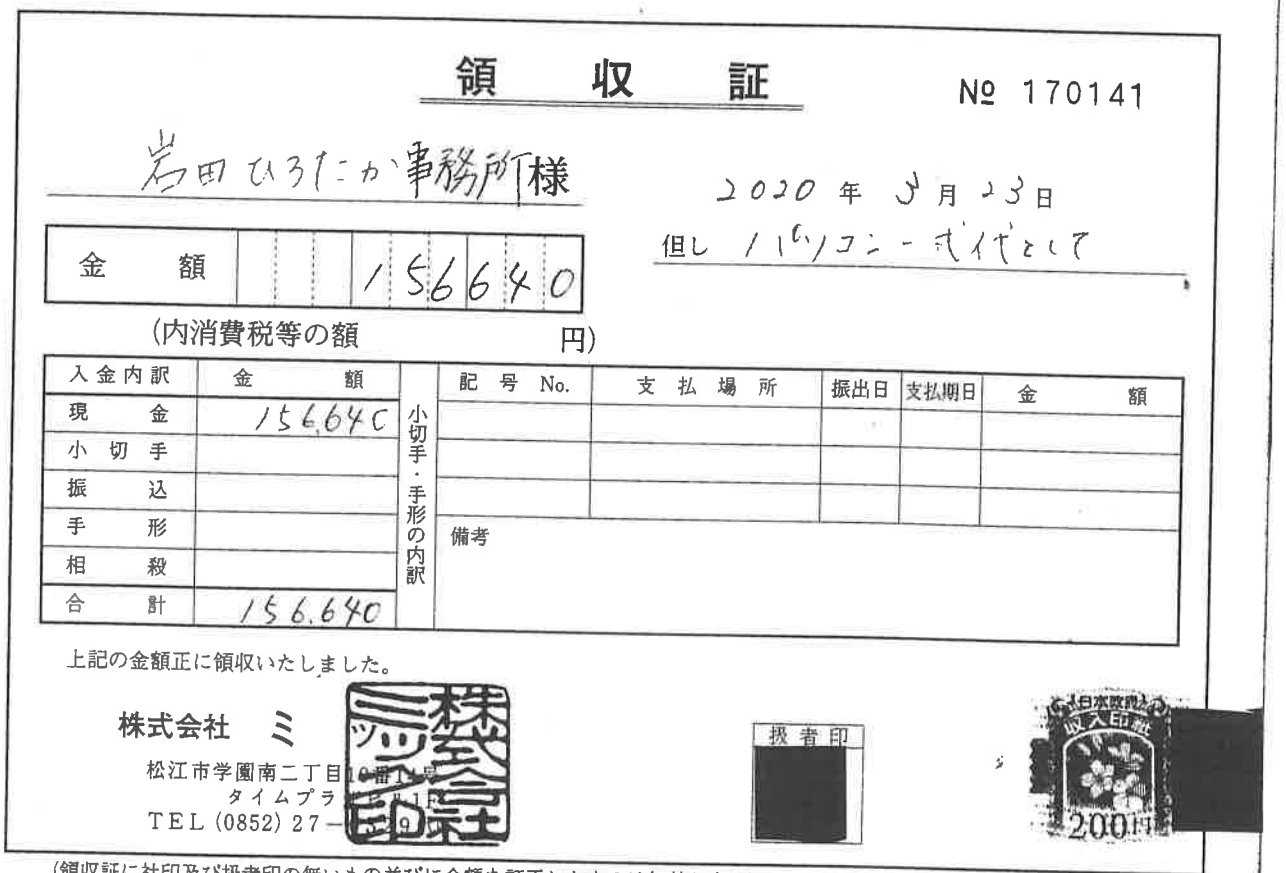 領収証
№ 170141
岩田ひろたか事務所様
2020年3月23日
但し パソコン一式代として
金額 156640
(内消費税等の額 円)
入金内訳 金額
現金 156,640
小切手
振込
手形
相殺
合計 156,640
小切手・手形の内訳
記号No. 支払場所 振出日 支払期日 金額
備考
上記の金額正に領収いたしました。
株式会社 ミ
松江市学園南二丁目
タイムプラ
TEL (0852) 27-
株式会社
扱者印
日本政府
収入印紙
200円